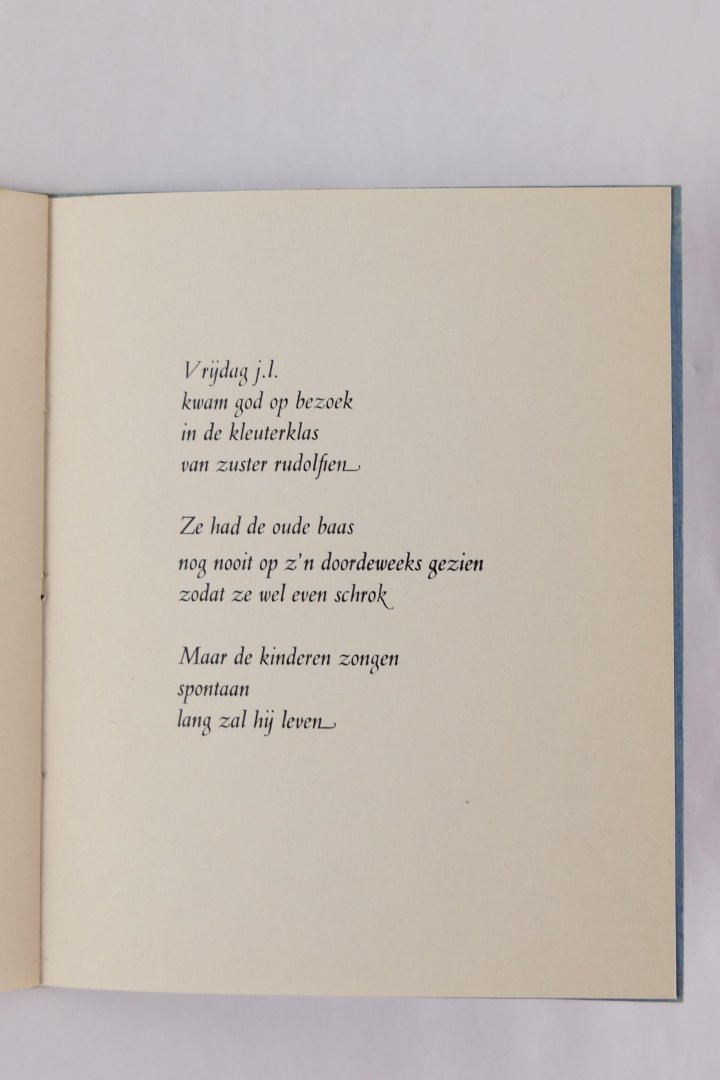 Vrijdag j.l.
kwam god op bezoek
in de kleuterklas
van zuster rudolfien
Ze had de oude baas
nog nooit op z'n doordeweeks gezien
zodat ze wel even schrok
Maar de kinderen zongen
spontaan
lang zal hij leven